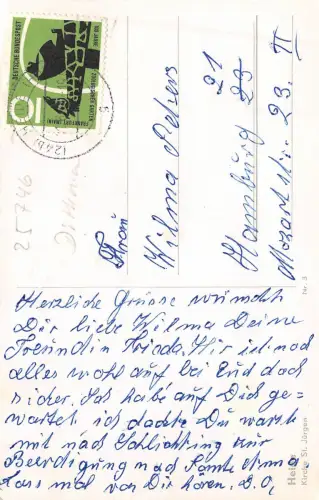 DEUTSCHE BUNDESPOST
100 JAHRE
ZOOLOGISCHER GARTEN
FRANKFURT (MAIN)
10
(24b)
25746
Frau
Wilma Peters
Hamburg 21
23
Mozartstr. 23. II
Nr. 8
Herzliche Grüsse wünscht
Dir liebe Wilma Deine
Freundin Frieda. Wir ist noch
alles wohl auf bei Euch doch
sicher. Ich habe auf Dich ge-
wartet ich dachte Du warst
mit nach Schlichting zur
Beerdigung nach Tante
lass mal von Dir hören.
Kirche St. Jürgen